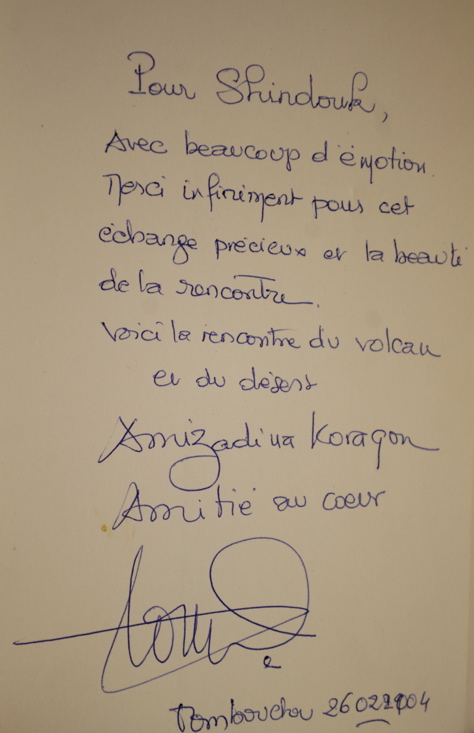 Pour Shindouk,
Avec beaucoup d'émotion.
Merci infiniment pour cet
échange précieux et la beauté
de la rencontre.
Voici la rencontre du volcan
et du désert
Amizadi na Koragon
Amitié au coeur
Tombouctou 26